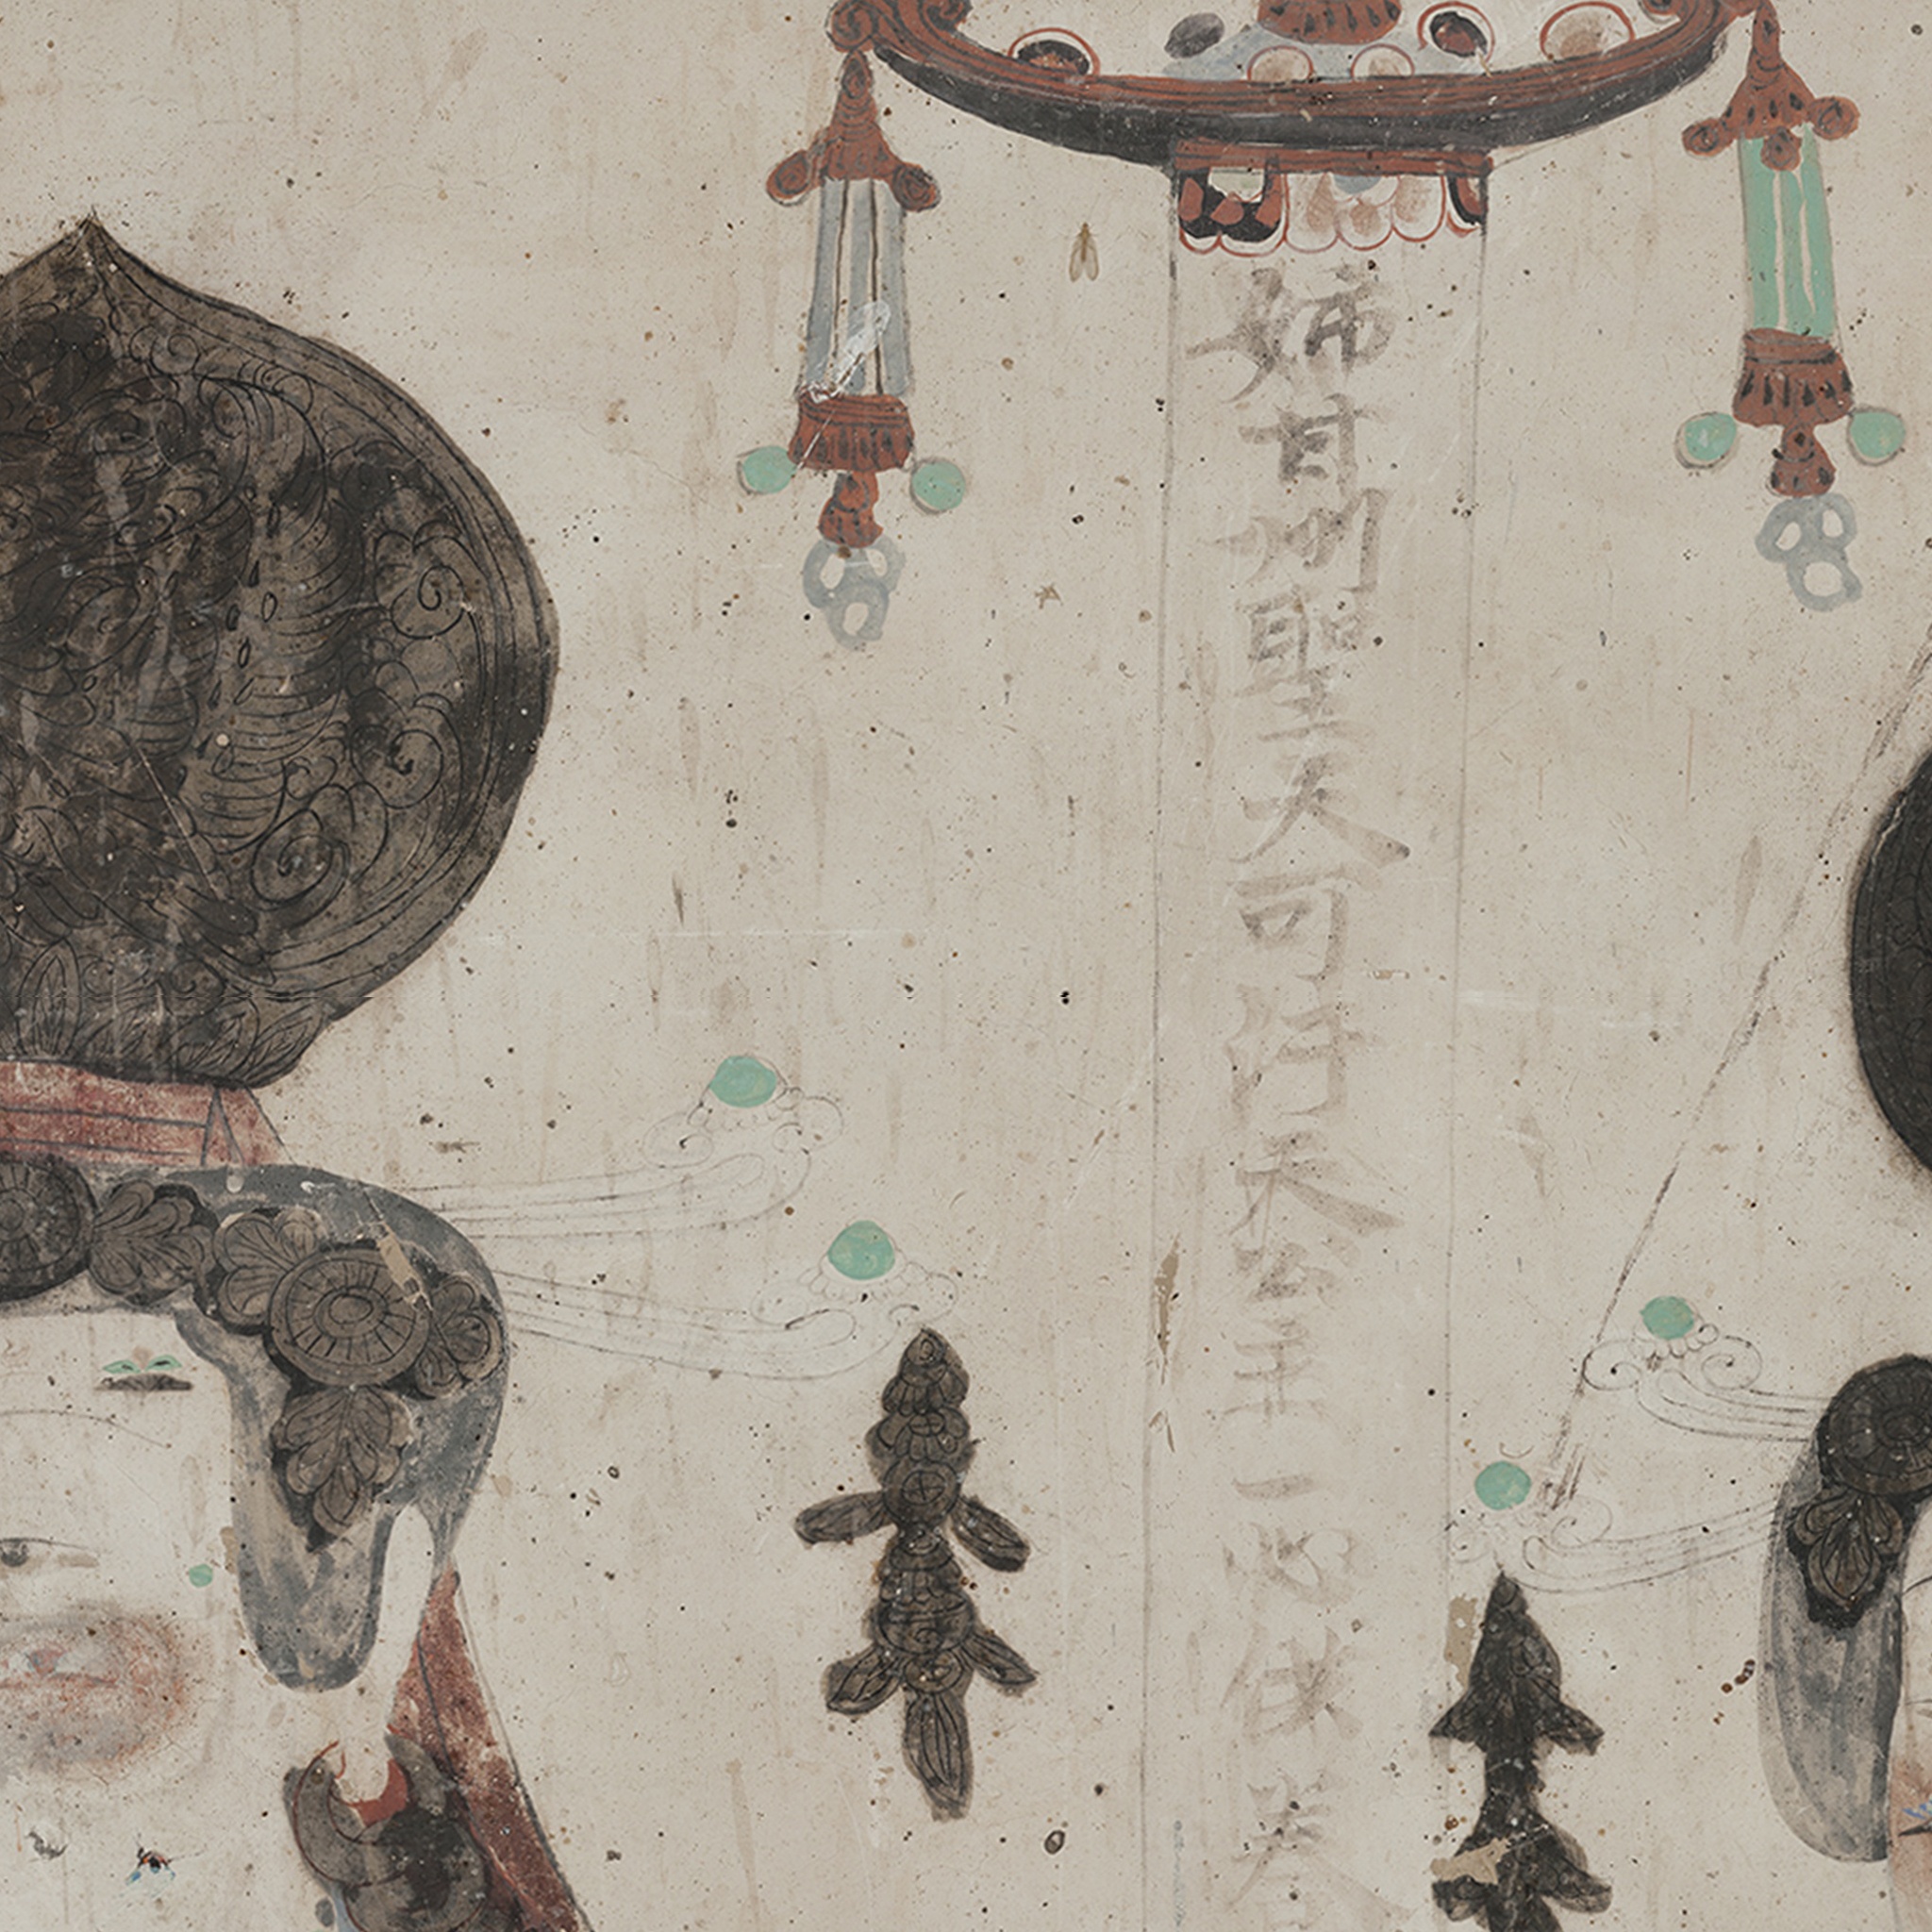 姉甘州聖天可汗天公主一心供養